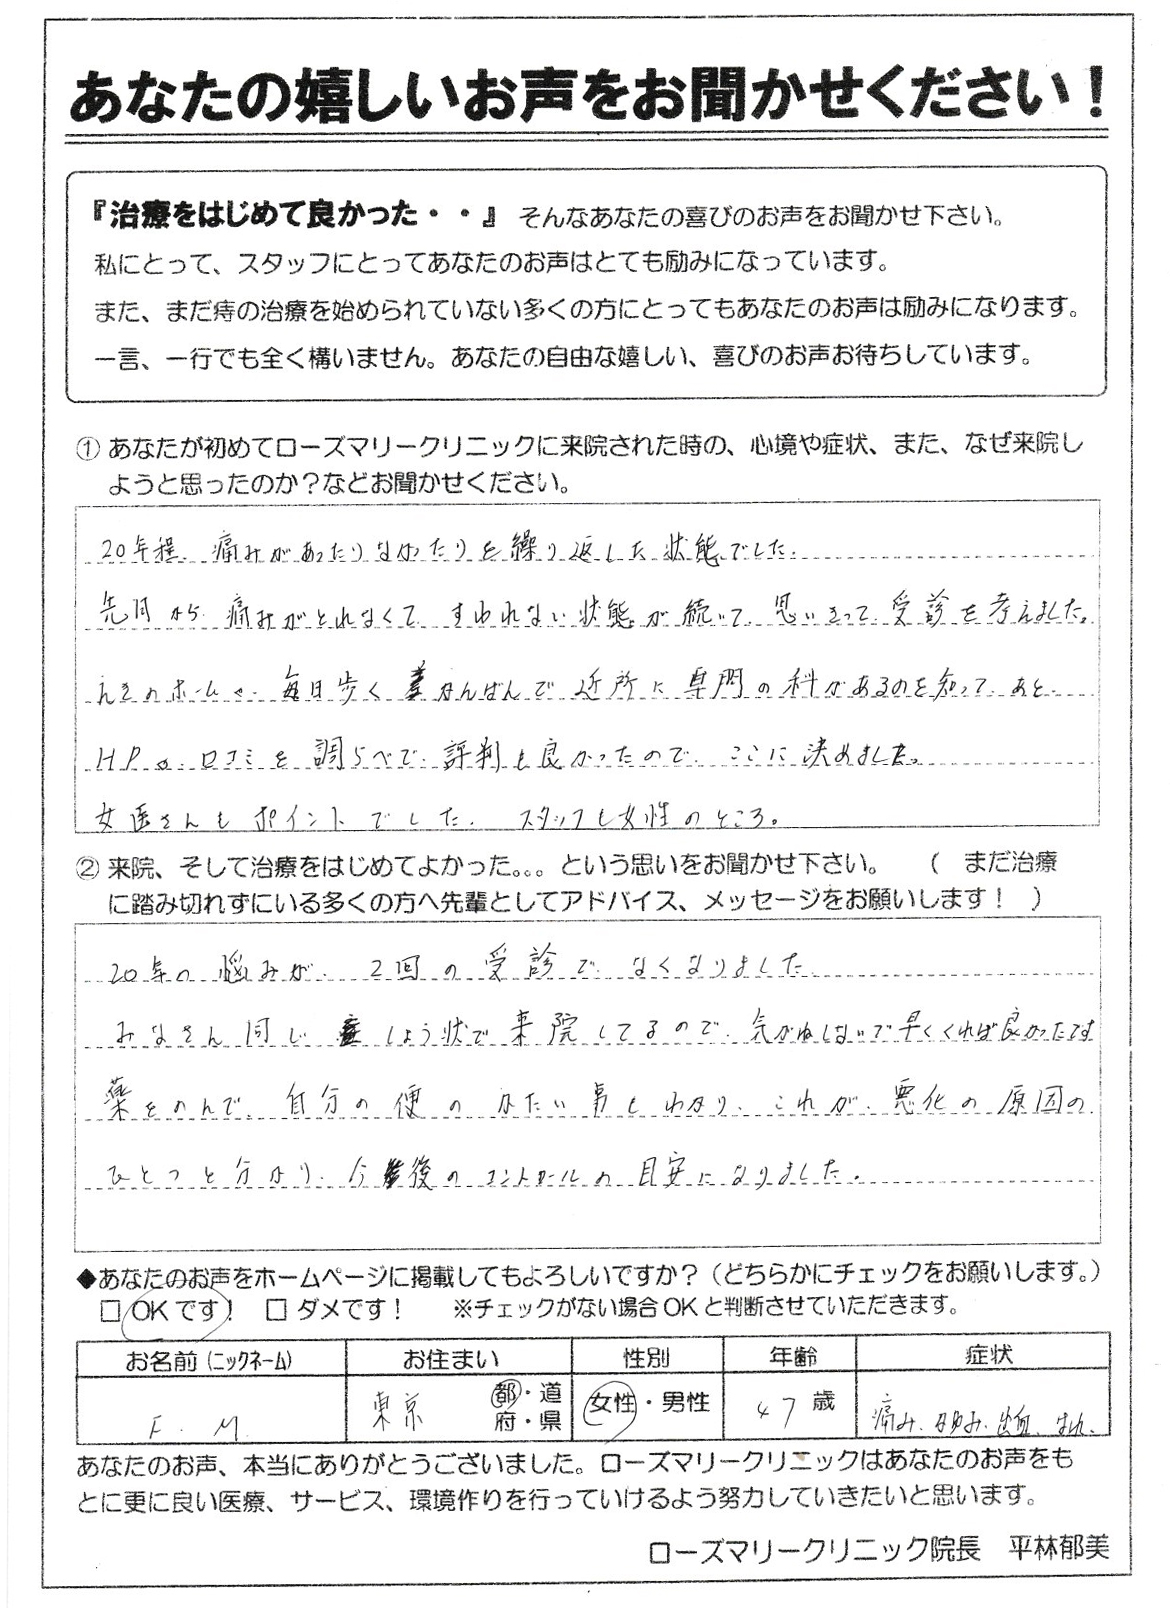 あなたの嬉しいお声をお聞かせください！
『治療をはじめて良かった・・』 そんなあなたの喜びのお声をお聞かせ下さい。
私にとって、スタッフにとってあなたのお声はとても励みになっています。
また、まだ痔の治療を始められていない多くの方にとってもあなたのお声は励みになります。
一言、一行でも全く構いません。あなたの自由な嬉しい、喜びのお声お待ちしています。
① あなたが初めてローズマリークリニックに来院された時の、心境や症状、また、なぜ来院し
ようと思ったのか？などお聞かせください。
20年程、痛みがあったりなかったりを繰り返した状態でした。
先月から、痛みがとれなくて、すわれない状態が続いて、思いきって、受診を考えました。
えきのホームや、毎日歩く かんばんで近所に専門の科があるのを知って、あと、
HPや、口コミを調らべて、評判も良かったので、ここに決めました。
女医さんもポイントでした。スタッフも女性のところ。
② 来院、そして治療をはじめてよかった。。。という思いをお聞かせ下さい。 （ まだ治療
に踏み切れずにいる多くの方へ先輩としてアドバイス、メッセージをお願いします！ ）
20年の悩みが、2回の受診で、なくなりました。
みなさん同じ しょう状で来院してるので、気がねしないで早くくれば良かったです
薬をのんで、自分の便のかたい事もわかり、これが、悪化の原因の
ひとつと分かり、今後のコントロールの目安になりました。
◆あなたのお声をホームページに掲載してもよろしいですか？（どちらかにチェックをお願いします。）
□ OKです！ □ ダメです！ ※チェックがない場合OKと判断させていただきます。
お名前（ニックネーム） お住まい 性別 年齢 症状
F. M. 東京 都・道府・県 女性・男性 47歳 痛み、かゆみ、出血、はれ、
あなたのお声、本当にありがとうございました。ローズマリークリニックはあなたのお声をも
とに更に良い医療、サービス、環境作りを行っていけるよう努力していきたいと思います。
ローズマリークリニック院長 平林郁美